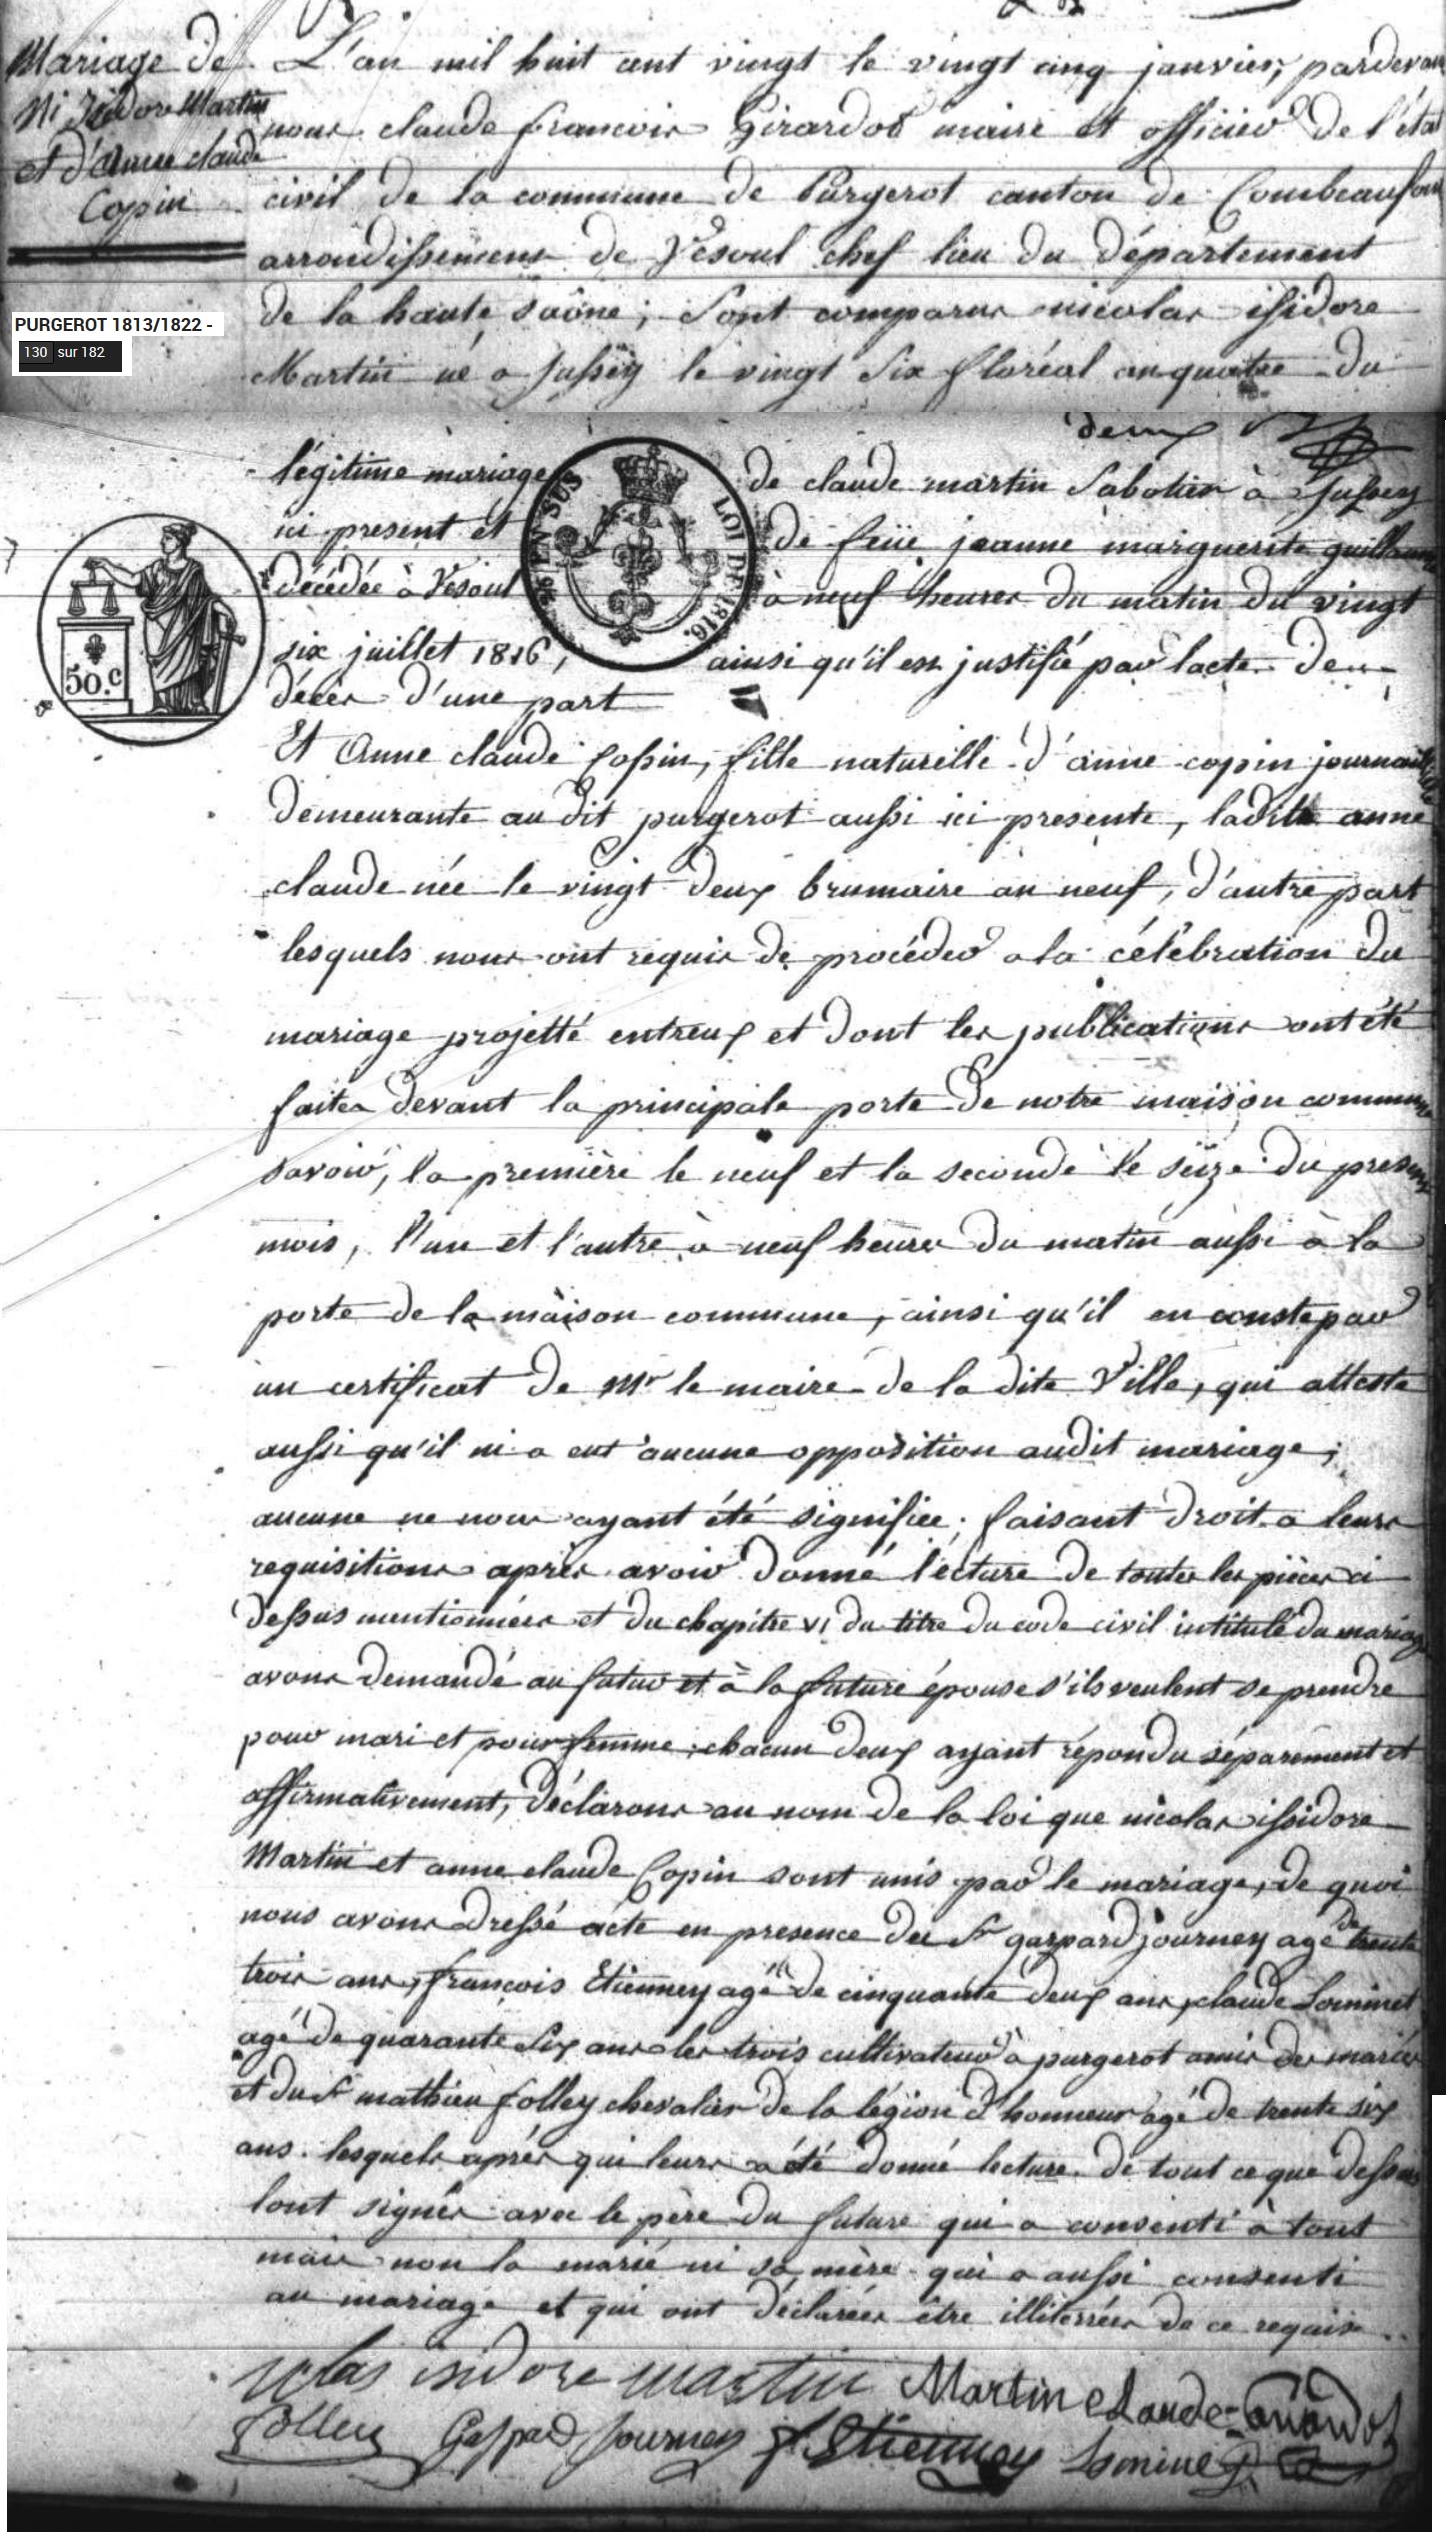 Mariage de
Ni Isidore Martin
et d'Anne claude
Copin
L'an mil huit cent vingt le vingt cinq janvier, pardevant
nous claude francois Girardot maire et officier de l'état
civil de la commune de Purgerot canton de Combeaufont
arrondissement de Vesoul chef lieu du département
de la haute saône; sont comparus nicolas issidore
Martin né a Jussey le vingt six floréal an quatre du
PURGEROT 1813/1822 -
130 sur 182
deux
légitime mariage de claude martin sabotier à Jussey
ici present et de feüe jeanne marguerite guillaume
décédée à Vesoul à neuf heures du matin du vingt
six juillet 1816, ainsi qu'il est justifié par lacte de
décès d'une part
EN SUS
LOI DE 1816.
50.c
Et Anne claude Copin, fille naturelle d'anne copin journalière
demeurante au dit purgerot aussi ici presente, ladite anne
claude née le vingt deux brumaire an neuf, d'autre part
lesquels nous ont requis de procéder a la célébration du
mariage projetté entreux et dont les publications ont été
faites devant la principale porte de notre maison commune
savoir, la première le neuf et la seconde le seize du present
mois, l'un et l'autre à neuf heures du matin aussi à la
porte de la maison commune, ainsi qu'il en conste par
un certificat de Mr le maire de la dite Ville, qui atteste
aussi qu'il ni a eut aucune opposition audit mariage;
aucune ne nous ayant été signifiée; faisant droit a leurs
requisitions après avoir donné lécture de toutes les pièces ci
dessus mentionnées et du chapitre VI du titre du code civil intitulé du mariage
avons demandé au futur et à la future épouse s'ils veulent se prendre
pour mari et pour femme; chacun deux ayant répondu séparément et
affirmativement, déclarons au nom de la loi que nicolas issidore
Martin et anne claude Copin sont unis par le mariage, de quoi
nous avons dressé acte en presence des Sr gaspard journey agé de trente
trois ans, françois Etienney agé de cinquante deux ans, claude Lominet
agé de quarante six ans les trois cultivateurs à purgerot amis des mariés
et du Sr mathieu folley chevalier de la légion d'honneur agé de trente six
ans. lesquels après qui leurs a été donné lecture de tout ce que dessus
lont signés avec le père du future qui a consenti à tout
mais non la marié ni sa mère qui a aussi consenti
au mariage et qui ont déclarées être illiterrées de ce requise
nicolas isidore martin Martin claude Girardot
Folley Gaspard Journey f. Etienney Lominet